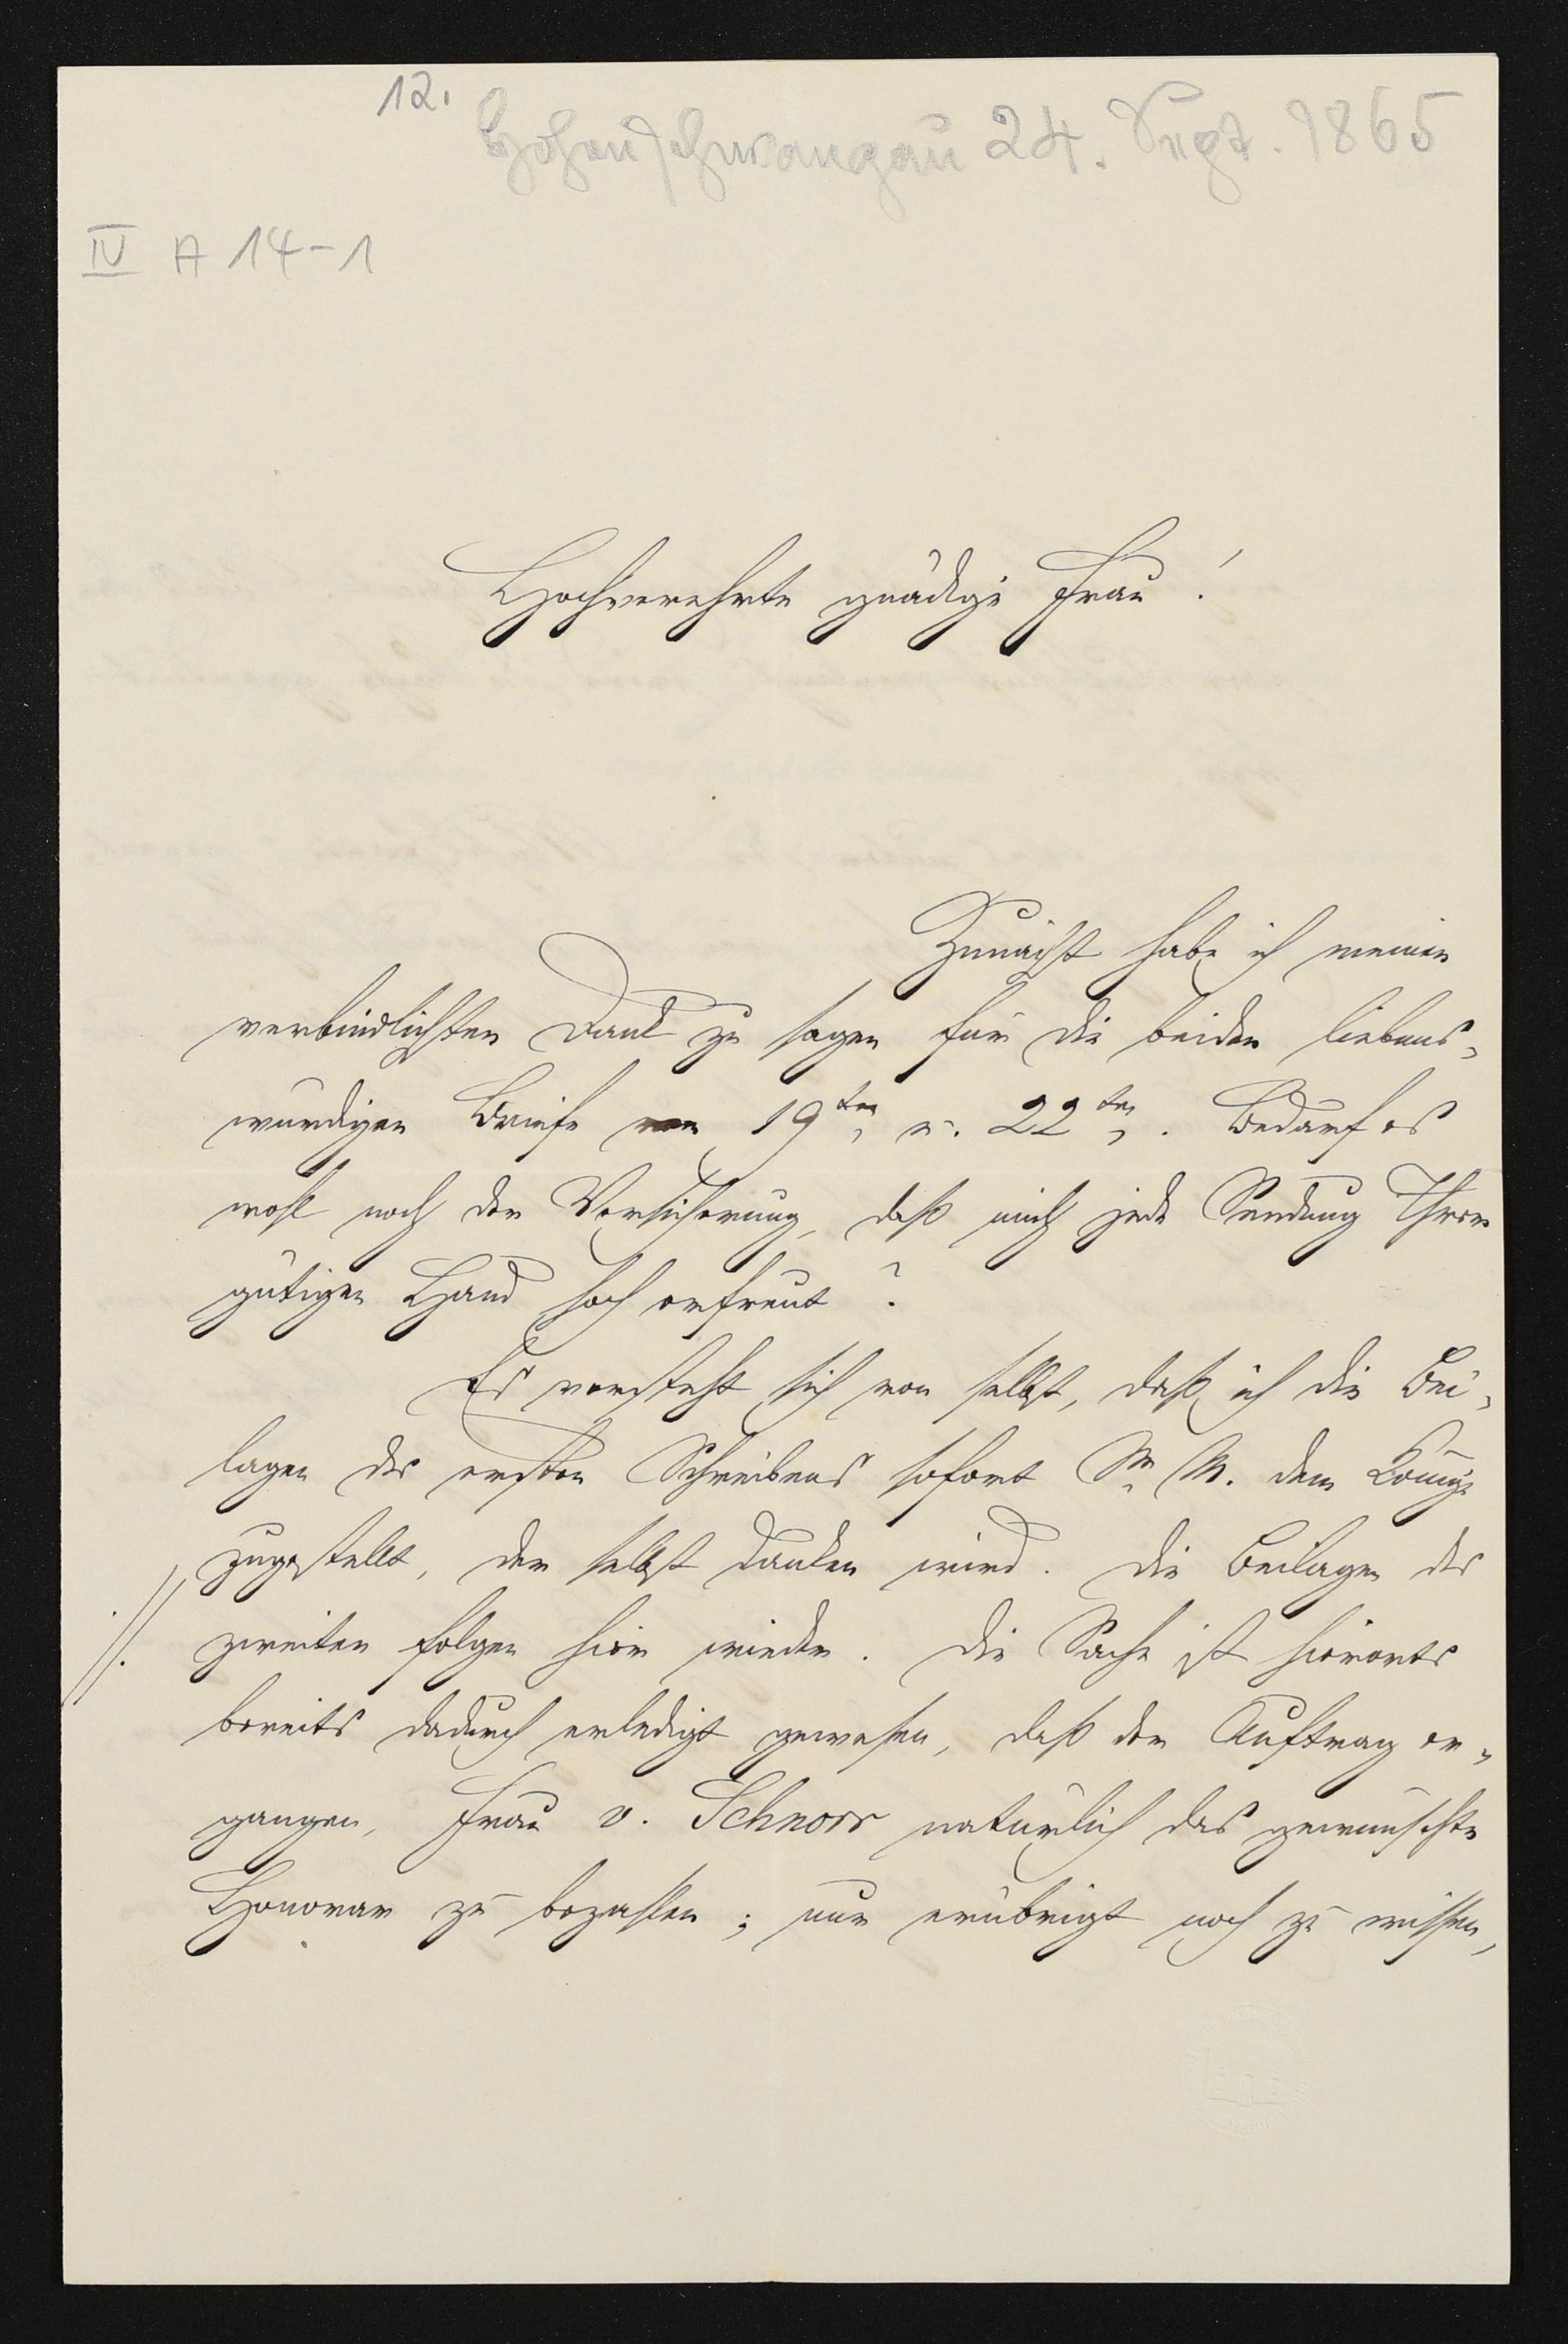 12.
Hohenschwangau 24. Augt. 1865
IV A 14-1
Hochverehrte gnädige Frau!
Zunächst habe ich meinen
verbindlichsten Dank zu sagen für die beiden liebens-
würdigen Briefe vom 19ten u. 22ten. Bedarf es
wohl noch der Versicherung, daß mich jede Sendung Ihrer
gütigen Hand hoch erfreut?
Es versteht sich von selbst, daß ich die Bei-
lagen des ersten Schreibens sofort Sr. M. dem König
zugestellt, der selbst danken wird. Die Beilagen des
zweiten folgen hier wieder. Die Sache ist hierorts
bereits dadurch erledigt gewesen, daß der Auftrag er-
gangen, Frau v. Schnorr natürlich das gewünschte
Honorar zu bezahlen; nur erübrigt noch zu wissen,